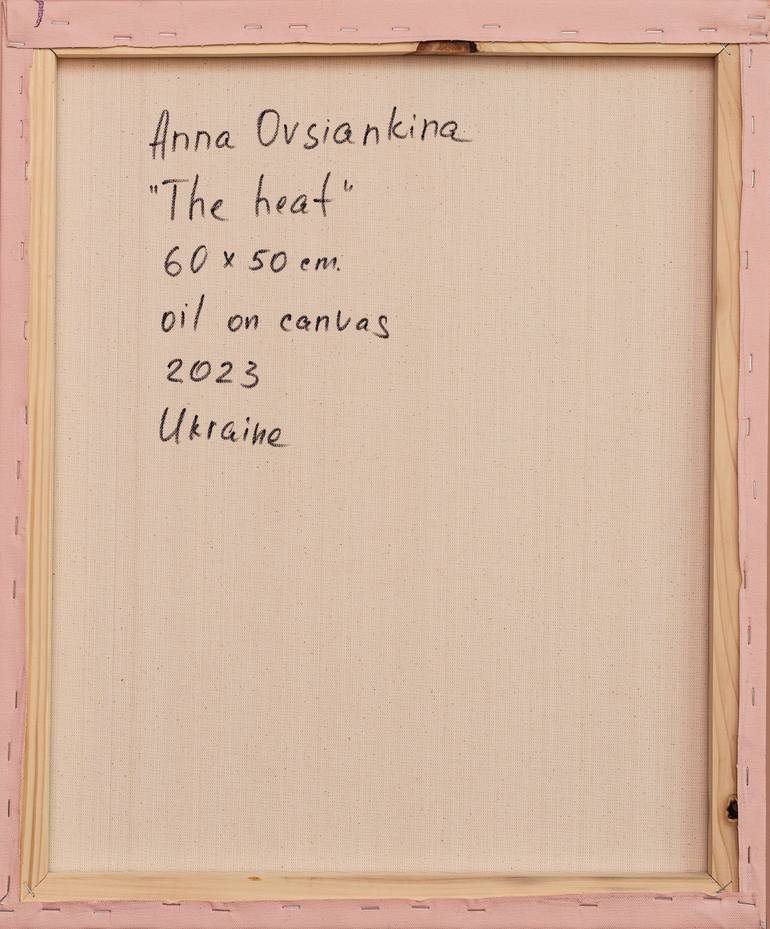 Anna Ovsiankina
"The heat"
60 x 50 cm.
oil on canvas
2023
Ukraine